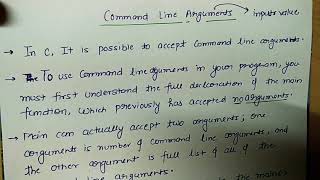 Command Line Arguments → input value
→ In C, It is possible to accept command line arguments.
→ To use command line arguments in your program, you
must first understand the full declaration of the main
function, which previously has accepted no arguments.
→ Main can actually accept two arguments; one
arguments is number of command line arguments, and
the other argument is full list of all of the
line arguments.